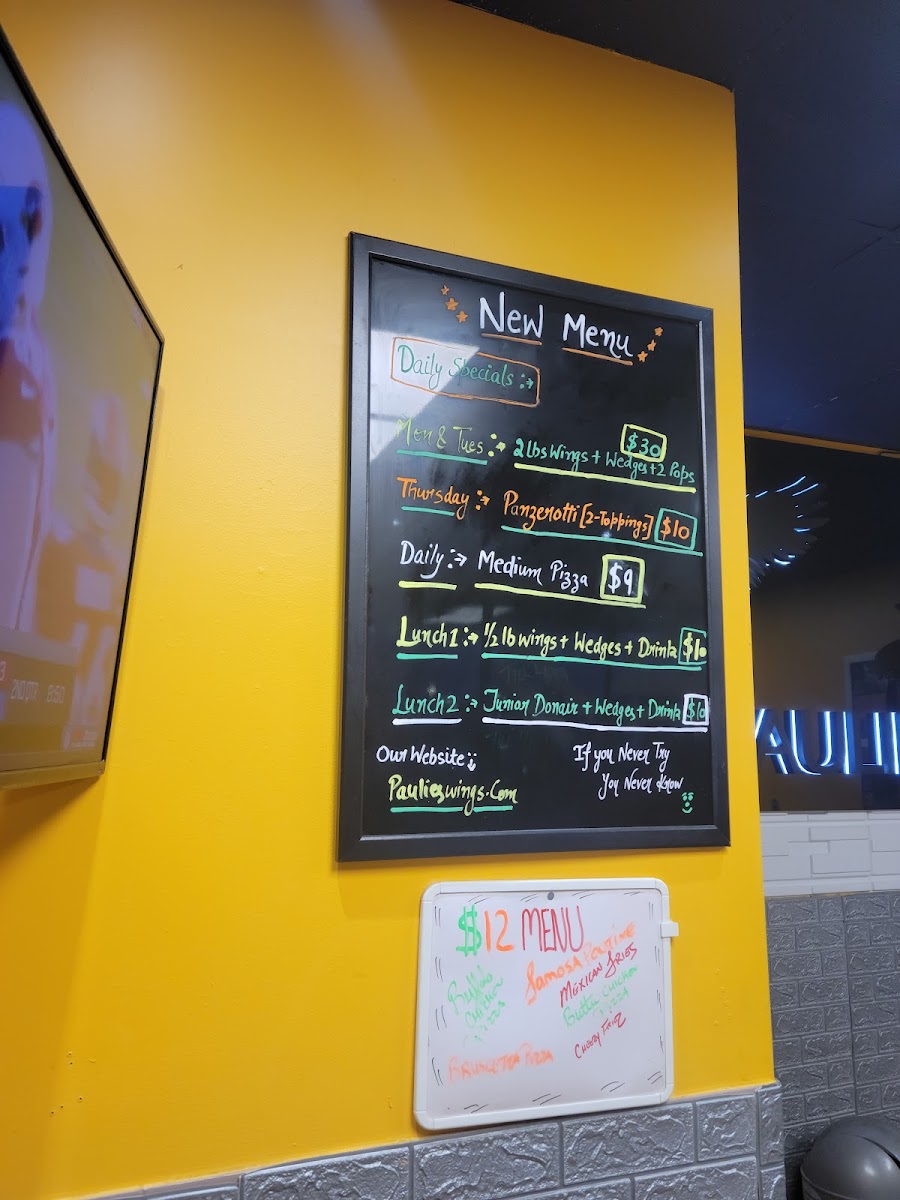 New Menu
Daily Specials :→
Mon & Tues :→ 2 lbs Wings + Wedges + 2 Pops $30
Thursday :→ Panzerotti [2-Toppings] $10
Daily :→ Medium Pizza $9
Lunch 1 :→ 1/2 lb wings + Wedges + Drink $10
Lunch 2 :→ Junior Donair + Wedges + Drink $10
Our Website
Paulieswings.Com
If you Never Try
You Never Know
$12 MENU
Buffalo
Chicken
Pizza
Samosa Poutine
MEXICAN FRIES
Butter CHICKEN
PIZZA
CHEESY FRIEZ
BRUSCETTA PIZZA
2ND QTR 8:50
AULI